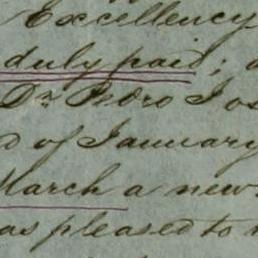 Excellency
duly paid; a
Dr. Pedro Jos
d of January
March a new
as pleased to